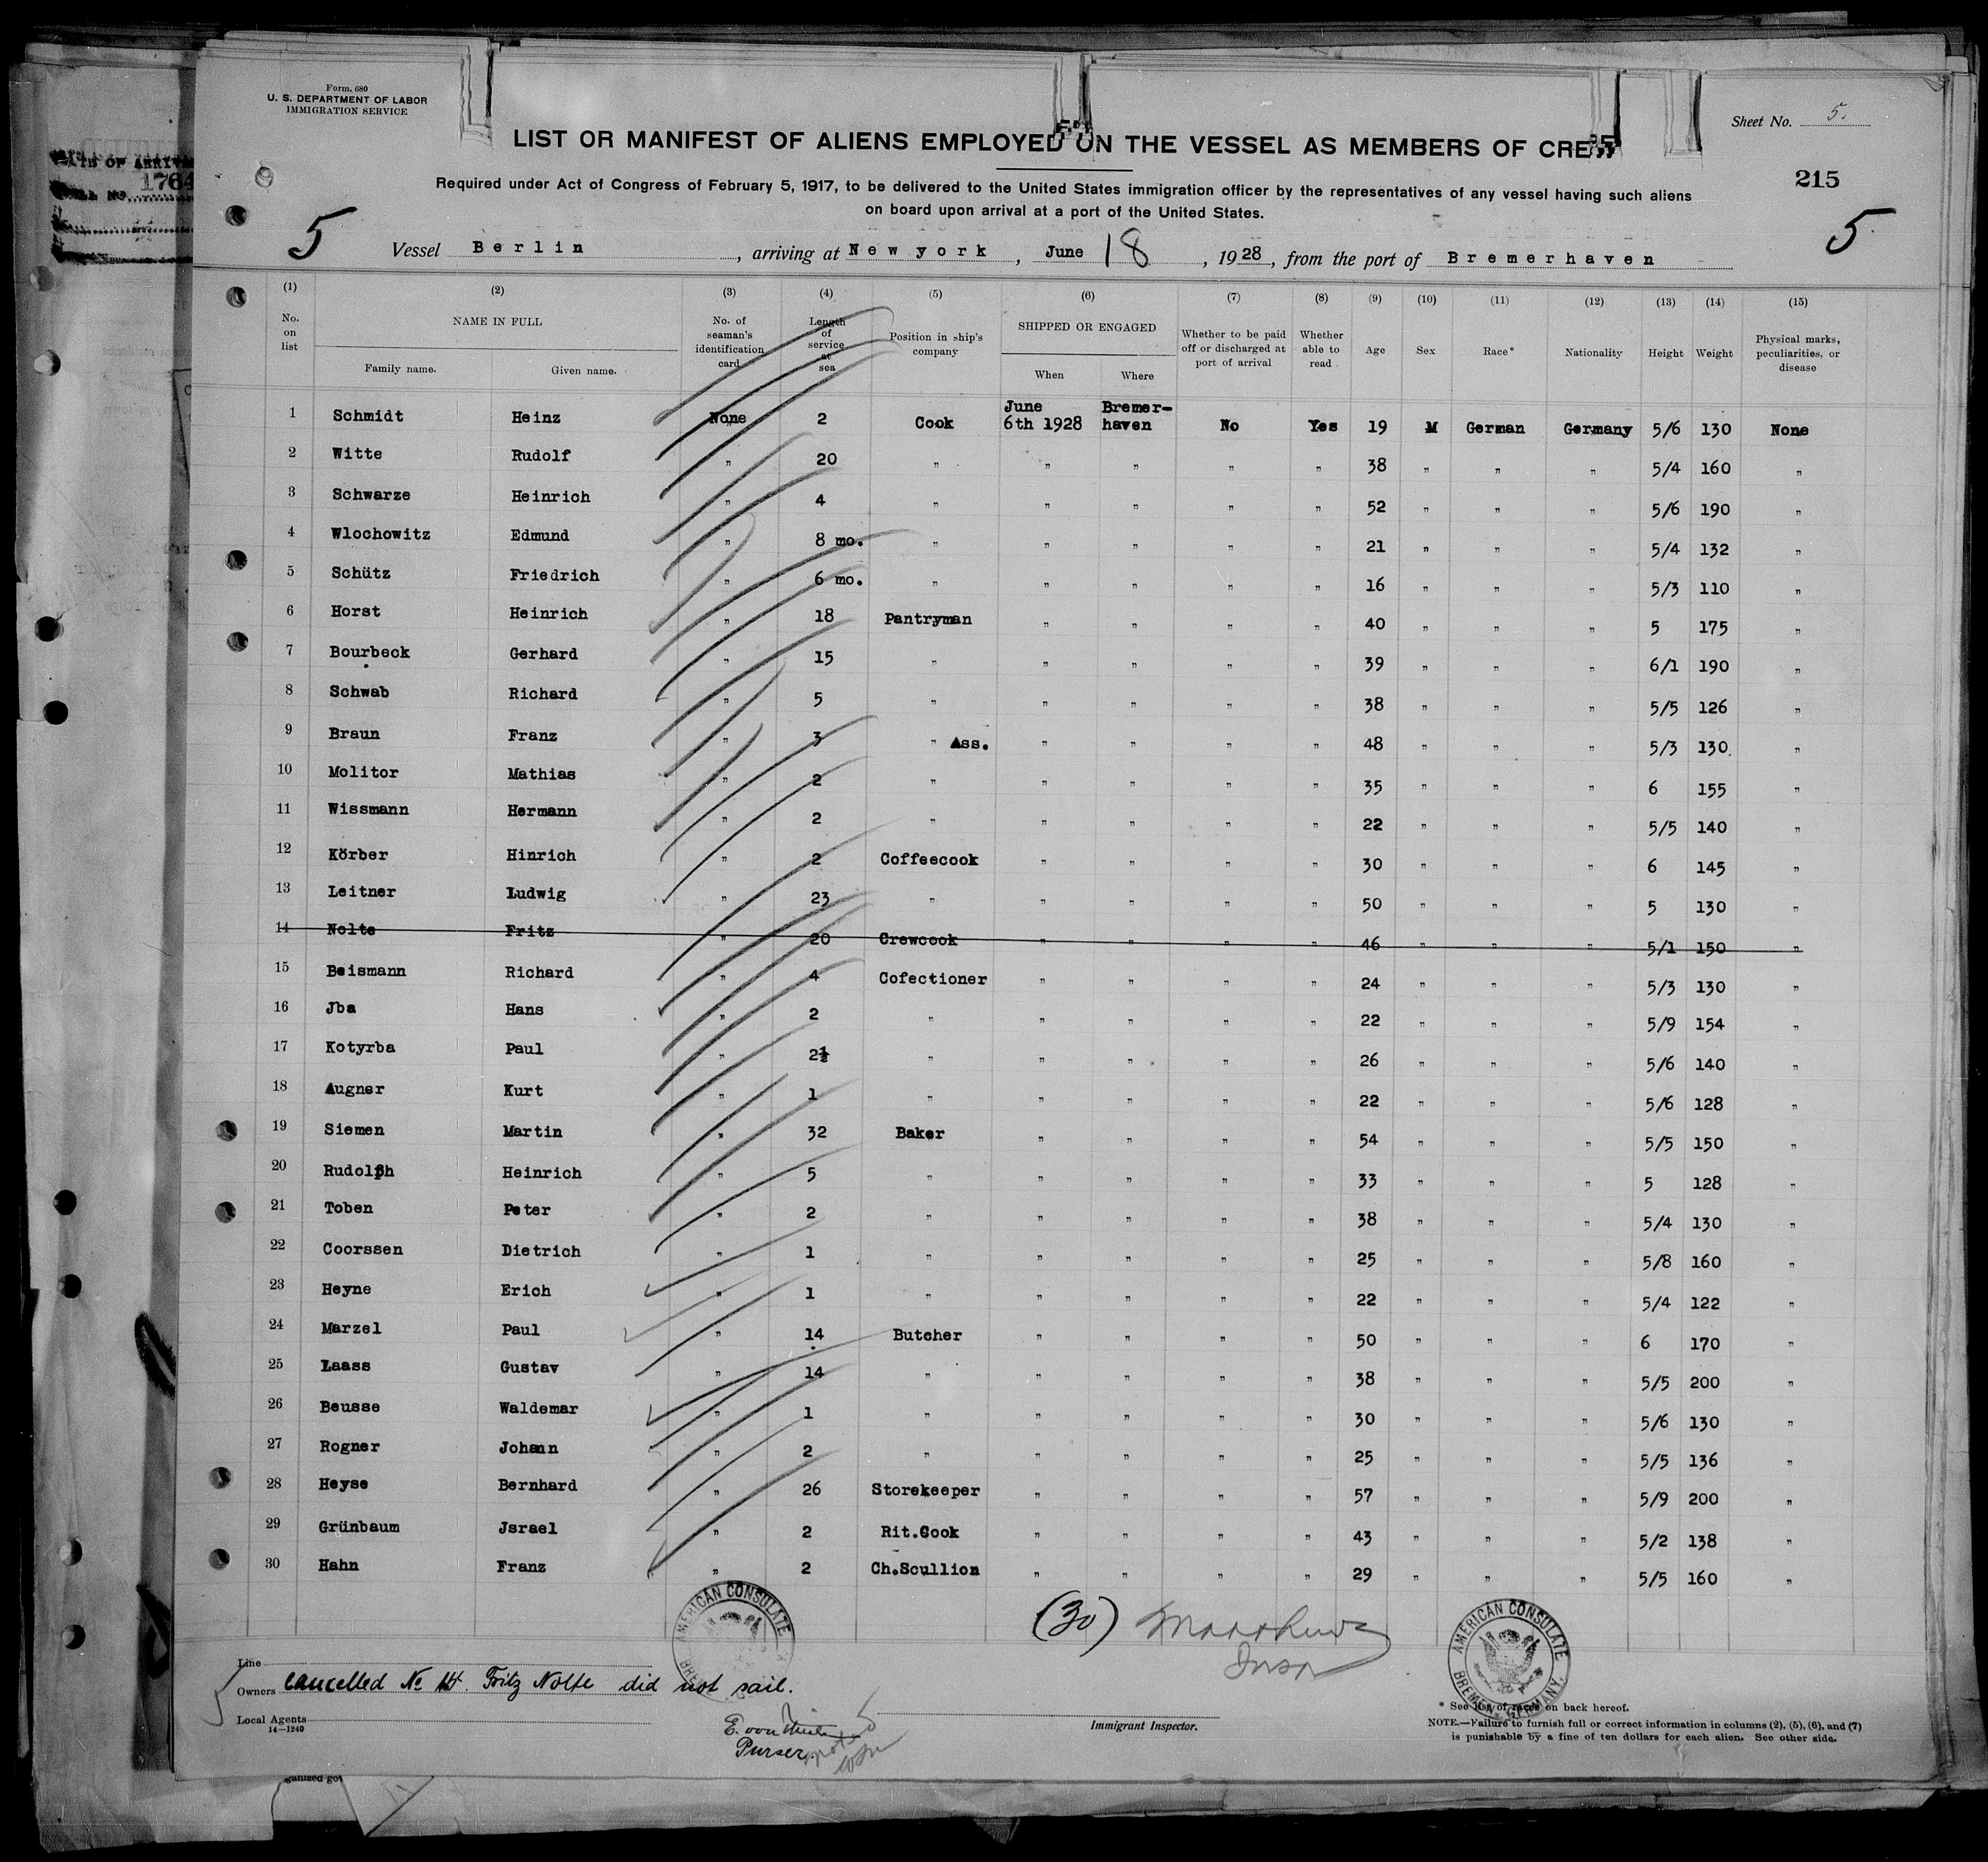 Form. 680
U. S. DEPARTMENT OF LABOR
IMMIGRATION SERVICE
Sheet No. 5.
LIST OR MANIFEST OF ALIENS EMPLOYED ON THE VESSEL AS MEMBERS OF CREW
215
Required under Act of Congress of February 5, 1917, to be delivered to the United States immigration officer by the representatives of any vessel having such aliens
on board upon arrival at a port of the United States.
5 Vessel Berlin, arriving at New york, June 18, 1928, from the port of Bremerhaven 5
(1) (2) (3) (4) (5) (6) (7) (8) (9) (10) (11) (12) (13) (14) (15)
No. on list NAME IN FULL Family name. Given name. No. of seaman's identification card Length of service at sea Position in ship's company SHIPPED OR ENGAGED When Where Whether to be paid off or discharged at port of arrival Whether able to read Age Sex Race* Nationality Height Weight Physical marks, peculiarities, or disease
1 Schmidt Heinz None 2 Cook June 6th 1928 Bremer-haven No Yes 19 M German Germany 5/6 130 None
2 Witte Rudolf " 20 " " " " " 38 " " " 5/4 160 "
3 Schwarze Heinrich " 4 " " " " " 52 " " " 5/6 190 "
4 Wlochowitz Edmund " 8 mo. " " " " " 21 " " " 5/4 132 "
5 Schütz Friedrich " 6 mo. " " " " " 16 " " " 5/3 110 "
6 Horst Heinrich " 18 Pantryman " " " " 40 " " " 5 175 "
7 Bourbeck Gerhard " 15 " " " " " 39 " " " 6/1 190 "
8 Schwab Richard " 5 " " " " " 38 " " " 5/5 126 "
9 Braun Franz " 3 " Ass. " " " " 48 " " " 5/3 130 "
10 Molitor Mathias " 2 " " " " " 35 " " " 6 155 "
11 Wissmann Hermann " 2 " " " " " 22 " " " 5/5 140 "
12 Körber Hinrich " 2 Coffeecook " " " " 30 " " " 6 145 "
13 Leitner Ludwig " 23 " " " " " 50 " " " 5 130 "
14 Nolte Fritz " 20 Crewcook " " " " 46 " " " 5/1 150 "
15 Beismann Richard " 4 Cofectioner " " " " 24 " " " 5/3 130 "
16 Jba Hans " 2 " " " " " 22 " " " 5/9 154 "
17 Kotyrba Paul " 2½ " " " " " 26 " " " 5/6 140 "
18 Augner Kurt " 1 " " " " " 22 " " " 5/6 128 "
19 Siemen Martin " 32 Baker " " " " 54 " " " 5/5 150 "
20 Rudolph Heinrich " 5 " " " " " 33 " " " 5 128 "
21 Toben Peter " 2 " " " " " 38 " " " 5/4 130 "
22 Coorssen Dietrich " 1 " " " " " 25 " " " 5/8 160 "
23 Heyne Erich " 1 " " " " " 22 " " " 5/4 122 "
24 Marzel Paul " 14 Butcher " " " " 50 " " " 6 170 "
25 Laass Gustav " 14 " " " " " 38 " " " 5/5 200 "
26 Beusse Waldemar " 1 " " " " " 30 " " " 5/6 130 "
27 Rogner Johann " 2 " " " " " 25 " " " 5/5 136 "
28 Heyse Bernhard " 26 Storekeeper " " " " 57 " " " 5/9 200 "
29 Grünbaum Jsrael " 2 Rit.Cook " " " " 43 " " " 5/2 138 "
30 Hahn Franz " 2 Ch.Scullion " " " " 29 " " " 5/5 160 "
(30)
AMERICAN CONSULATE
AMERICAN CONSULATE BREMEN, GERMANY.
Line
Owners cancelled No 14. Fritz Nolte did not sail.
Local Agents
14—1240
Purser.
Immigrant Inspector.
* See list of races on back hereof.
NOTE.—Failure to furnish full or correct information in columns (2), (5), (6), and (7)
is punishable by a fine of ten dollars for each alien. See other side.